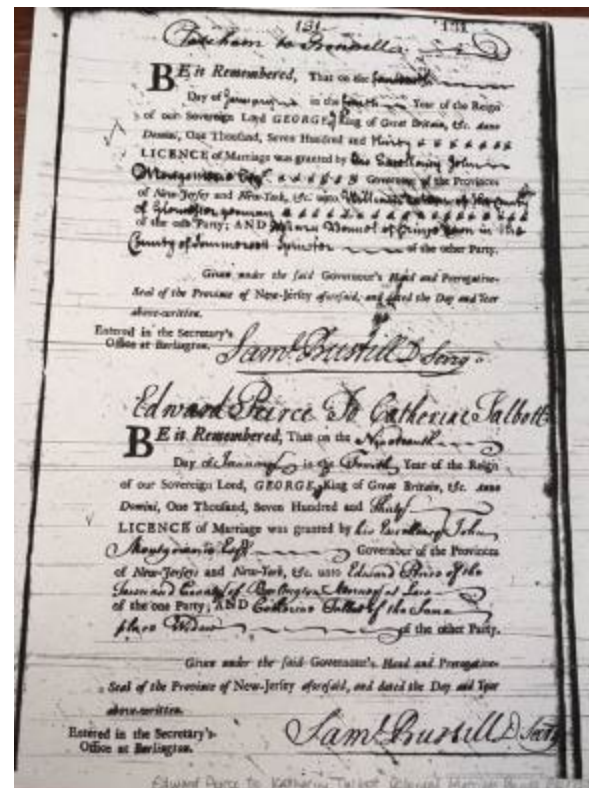 131 131
to
BE it Remembered, That on the
Day of January in the fourth Year of the Reign
of our Sovereign Lord GEORGE, King of Great Britain, &c. Anno
Domini, One Thousand, Seven Hundred and thirty
LICENCE of Marriage was granted by his Excellency John
Montgomerie Esqr. Governor of the Provinces
of New-Jersey and New-York, &c. unto William of the County
of Gloucester yeoman
of the one Party; AND of in the
County of Sommersett Spinster of the other Party.
Given under the said Governour's Hand and Prerogative-
Seal of the Province of New-Jersey aforesaid, and dated the Day and Year
above-written.
Entered in the Secretary's
Office at Burlington.
Saml. Bustill D Secry.
Edward Peirce To Catherine Talbott
BE it Remembered, That on the Nineteenth
Day of January in the Fourth Year of the Reign
of our Sovereign Lord, GEORGE, King of Great Britain, &c. Anno
Domini, One Thousand, Seven Hundred and Thirty
LICENCE of Marriage was granted by his Excellency John
Montgomerie Esqr. Governor of the Provinces
of New-Jersey and New-York, &c. unto Edward Peirce of the
Town and County of Burlington Attorney at Law
of the one Party; AND Catherine Talbot of the Same
place Widow of the other Party.
Given under the said Governour's Hand and Prerogative-
Seal of the Province of New-Jersey aforesaid, and dated the Day and Year
above-written.
Entered in the Secretary's
Office at Burlington.
Saml. Bustill D Secry
Edward Peirce to Katherine Talbot Colonial Marriage Bonds